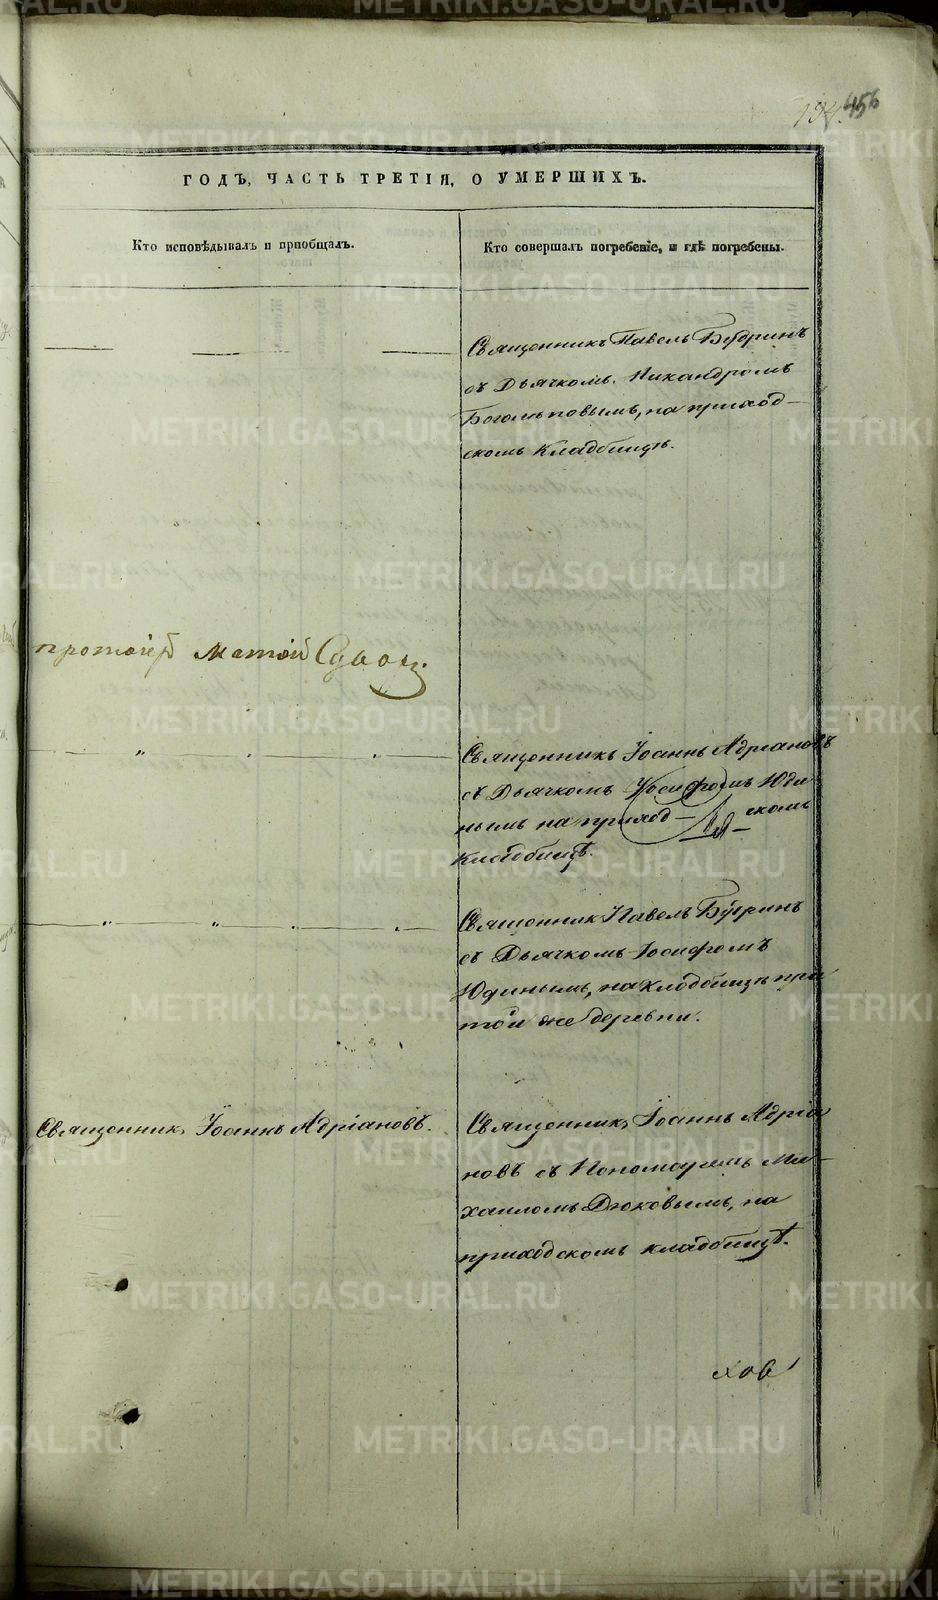 456
ГОДЪ, ЧАСТЬ ТРЕТІЯ, О УМЕРШИХЪ.
Кто исповѣдывалъ и пріобщалъ.
Кто совершалъ погребеніе, и гдѣ погребены.
Священникъ Павелъ Будринъ
съ Дьячкомъ Никандромъ
на приход-
скомъ Кладбищѣ.
протоіер
Священникъ Іоаннъ Адріановъ
съ Дьячкомъ Іосифомъ Юди-
нымъ на приход- скомъ
кладбищѣ.
Священник Павелъ Будринъ
съ Дьячкомъ Іосифомъ
Юдинымъ, на кладбищѣ при
той же деревни.
Священникъ Іоаннъ Адріановъ.
Священникъ Іоаннъ Адріа
новъ съ Пономаремъ Ми-
хаиломъ Дюковымъ, на
приходскомъ кладбищѣ.
METRIKI.GASO-URAL.RU